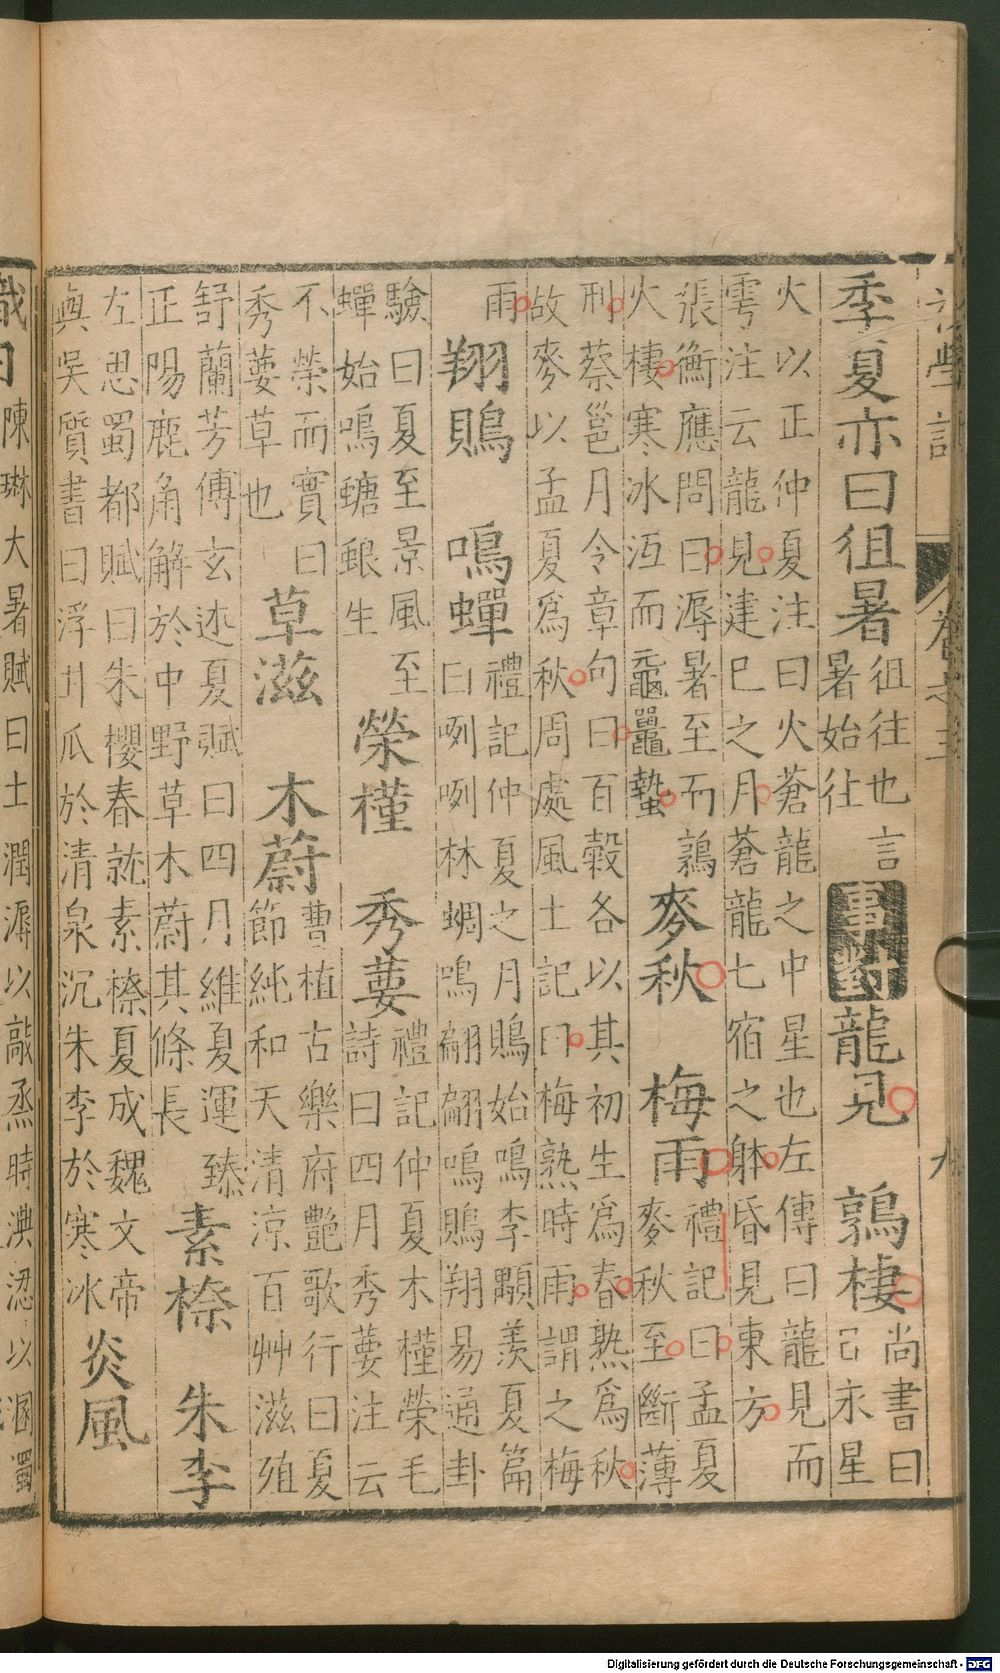 初學記
卷之三
九
季夏亦曰徂暑
徂往也言
暑始往
事對
龍見
鶉棲
尚書曰
日永星
火以正仲夏注曰火蒼龍之中星也左傳曰龍見而
雩注云龍見建巳之月蒼龍七宿之躰昏見東方
張衡應問曰溽暑至而鶉
火棲寒冰沍而黿鼉蟄
麥秋
梅雨
禮記曰孟夏
麥秋至斷薄
刑蔡邕月令章句曰百穀各以其初生爲春熟爲秋
故麥以孟夏爲秋周處風土記曰梅熟時雨謂之梅
雨
翔鵙
鳴蟬
禮記仲夏之月鵙始鳴李顒羨夏篇
曰咧咧林蜩鳴翩翩鳴鵙翔易通卦
驗曰夏至景風至
蟬始鳴螗蜋生
榮槿
秀葽
禮記仲夏木槿榮毛
詩曰四月秀葽注云
不榮而實曰
秀葽草也
草滋
木蔚
曹植古樂府艷歌行曰夏
節純和天清涼百艸滋殖
舒蘭芳傅玄述夏賦曰四月維夏運臻
正陽鹿角解於中野草木蔚其條長
素㮈
朱李
左思蜀都賦曰朱櫻春就素㮈夏成魏文帝
與吳質書曰浮甘瓜於清泉沉朱李於寒冰
炎風
陳琳大暑賦曰土潤溽以敲烝時淟涊以溷濁
Digitalisierung gefördert durch die Deutsche Forschungsgemeinschaft - DFG